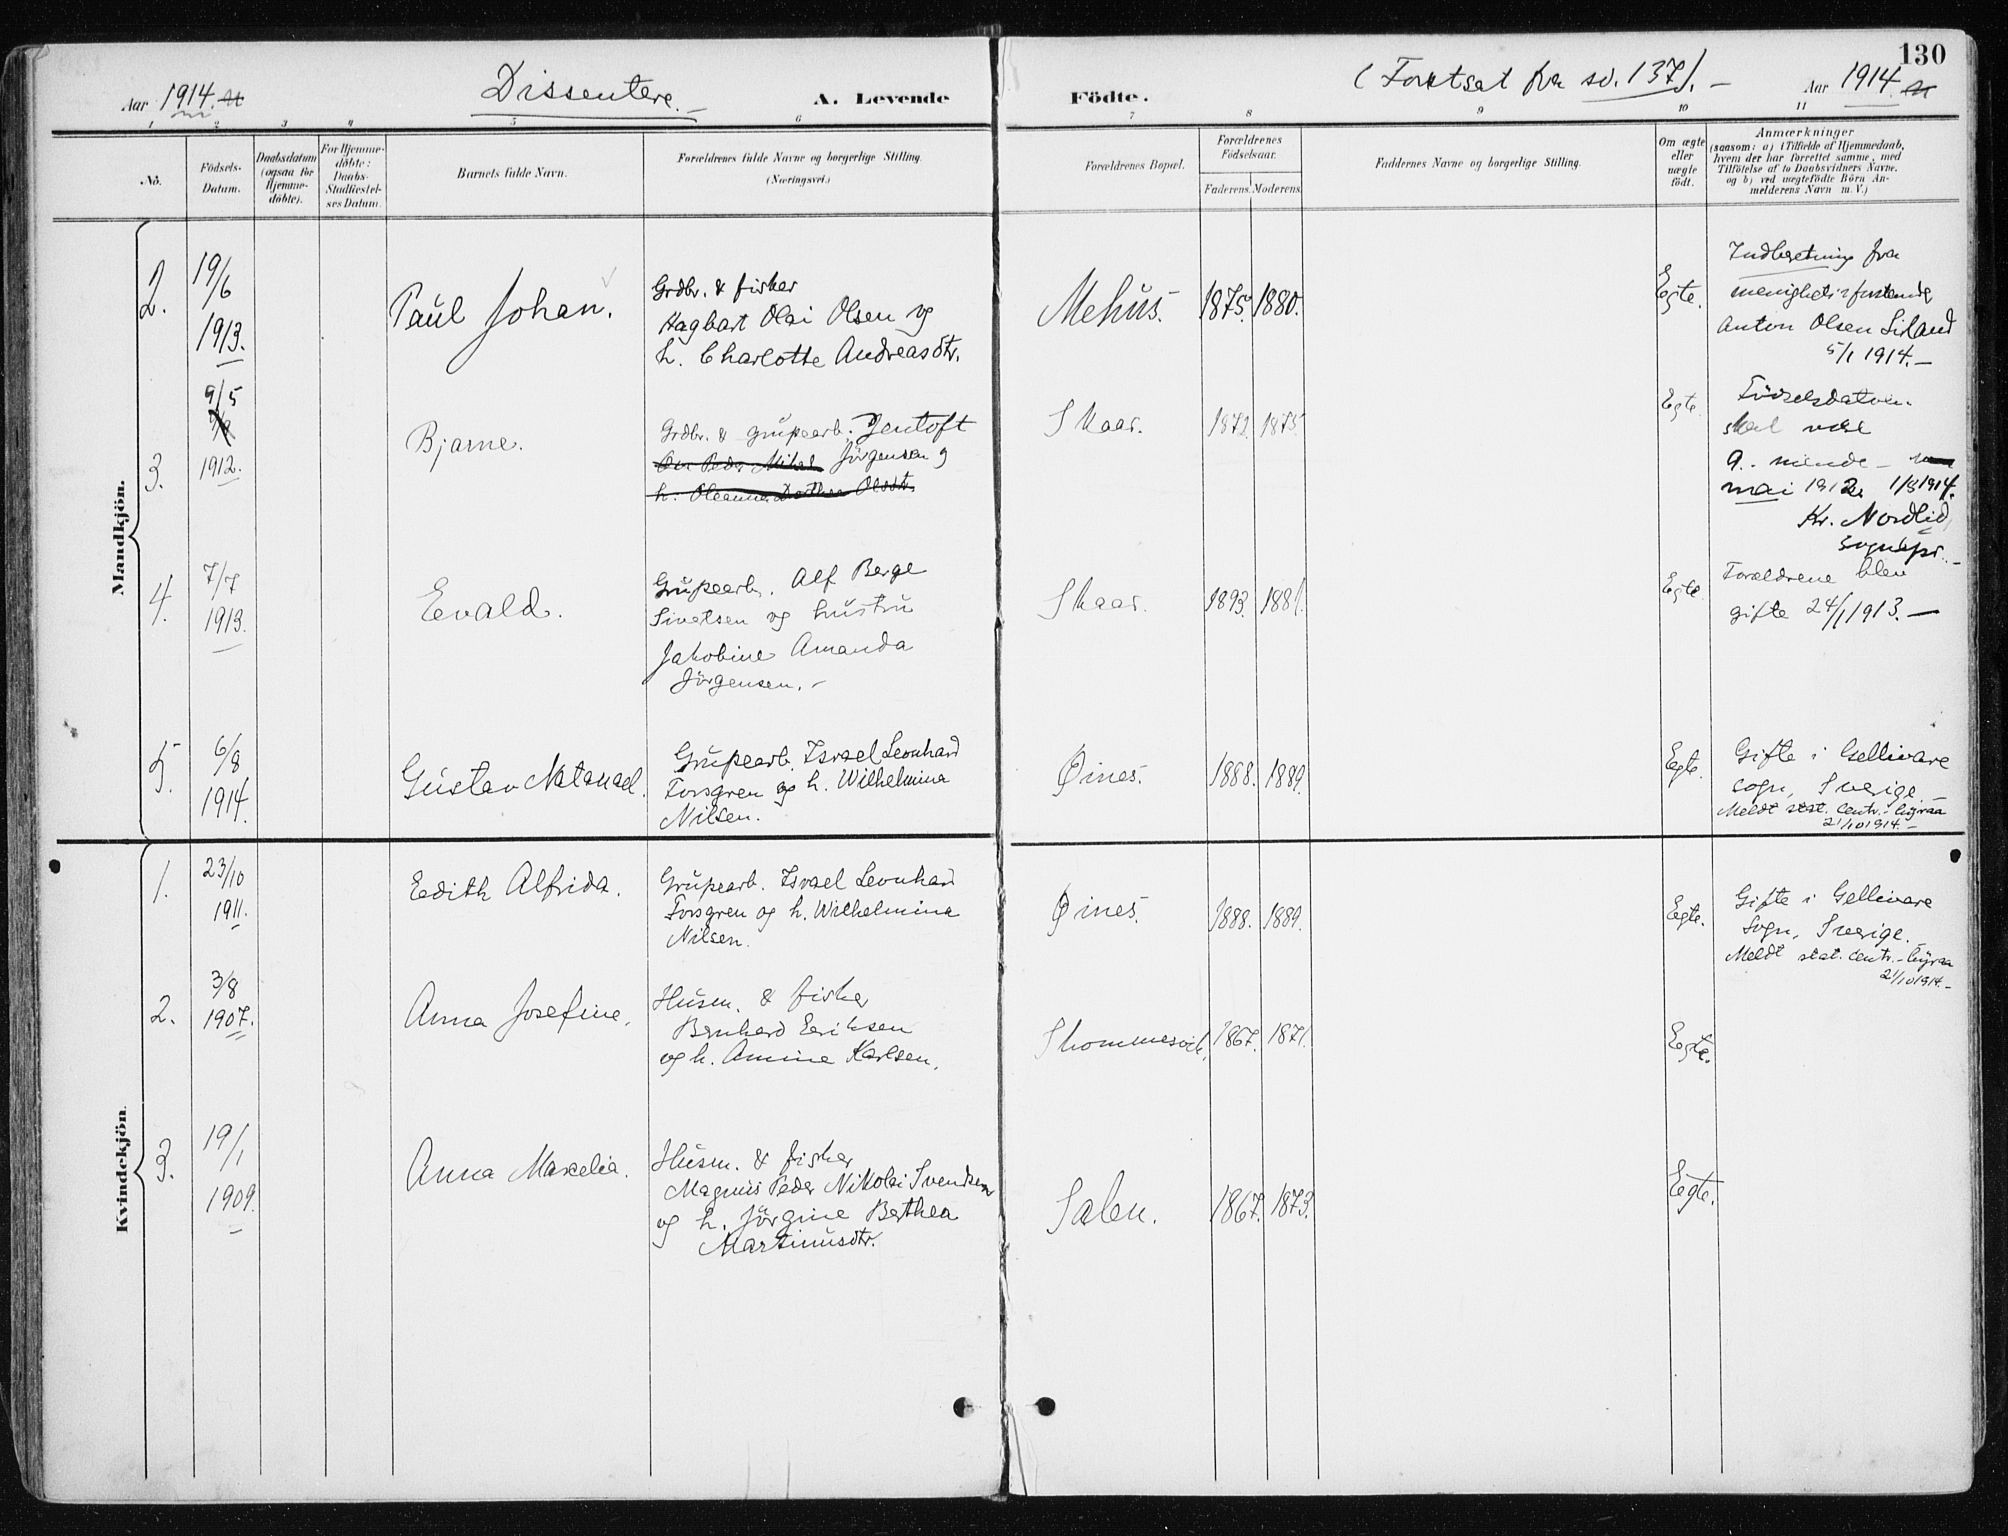 130
Aar 1914.
Dissentere.
A. Levende
Födte.
(Fortsat fra sd. 137). –
Aar 1914
1 2 3 4 5 6 7 8 9 10 11
No.
Födsels-
Datum.
Daabsdatum
(ogsaa for
Hjemme-
döbte).
For Hjemme-
döbte:
Daabs-
Stadfæstel-
ses Datum.
Barnets fulde Navn.
Forældrenes fulde Navne og borgerlige Stilling.
(Næringsvei.)
Forældrenes Bopæl.
Forældrenes
Födselsaar.
Faderens. Moderens.
Faddernes Navne og borgerlige Stilling.
Om ægte
eller
uægte
födt.
Anmærkninger
(saasom: a) i Tilfælde af Hjemmedaab,
hvem der har forrettet samme, med
Tilföielse af to Daabsvidners Navne.
og b) ved uægtefödte Börn An-
melderens Navn m. V.)
Mandkjön.
2.
19/6
1913.
Paul Johan.
Grdbr. & fisker
Hagbart Olai Olsen og
h. Charlotte Andreasdtr.
Mehus.
1875. 1880.
Egte.
Indberetning fra
menighetsforstander
Anton Olsen Liland
5/1 1914. –
3.
9/5
1912.
Bjarne.
Grdbr. & grupearb. Jentoft
Ole Peder Mikal Jörgensen og
h. Oleanna Dorthea Olsdtr.
Skaar.
1872. 1875.
Egte.
Födselsdatoen
skal være
9. niende –
mai 1912. 1/3 1914.
Kr. Nordlid,
sognepr. –
4.
7/7
1913.
Eevald.
Grupearb. Alf Berge
Sivetsen og hustru
Jakobine Amanda
Jörgensen. –
Skaar.
1893. 1881.
Egte.
Forældrene blev
gifte 24/1 1913. –
5.
6/8
1914.
Gustav Natanael.
Grupearb. Israel Leonhard
Forsgren og h. Wilhelmina
Nilsen.
Øines.
1888. 1889.
Egte.
Gifte i Gellivare
sogn, Sverige. –
Meldt stat. centr.-byraa
21/10 1914. –
Kvindekjön.
1.
23/10
1911.
Eedith Alfrida.
Grupearb. Israel Leonhard
Forsgren og h. Wilhelmina
Nilsen.
Øines.
1888. 1889.
Egte.
Gifte i Gellivare
sogn, Sverige.
Meldt stat. centr.-byraa
21/10 1914. –
2.
3/8
1907.
Anna Josefine.
Husm. & fisker
Bernhard Eeriksen
og h. Amine Karlsen.
Skommesvik.
1867. 1871.
Egte.
3.
19/1
1909.
Anna Marcelia.
Husm. & fisker
Magnus Peder Nikolai Svendsen
og h. Jörgine Berthea
Martinusdtr.
Salen.
1867. 1873.
Egte.